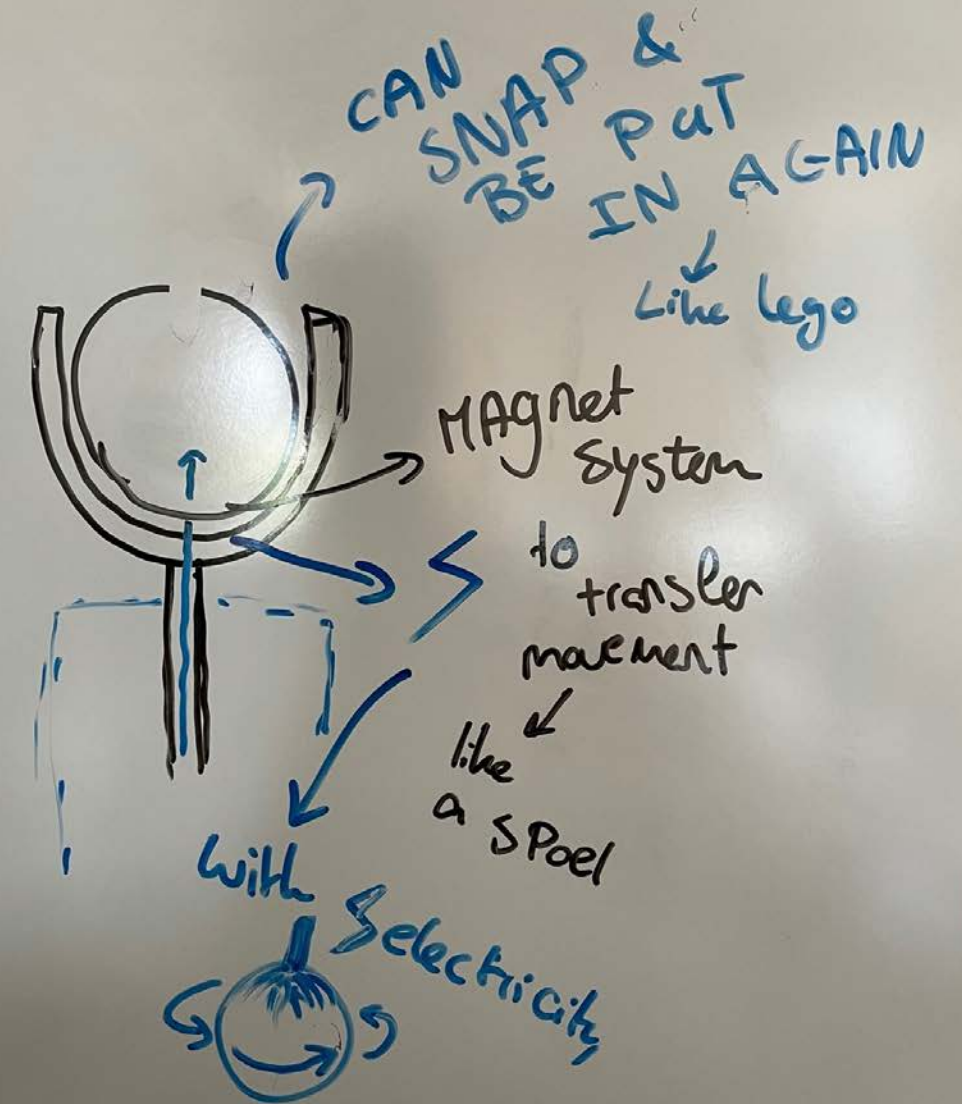 CAN
SNAP &
BE PUT
IN AGAIN
Like lego
MAgnet
system
to
transfer
movement
like
a SPoel
with
electricity